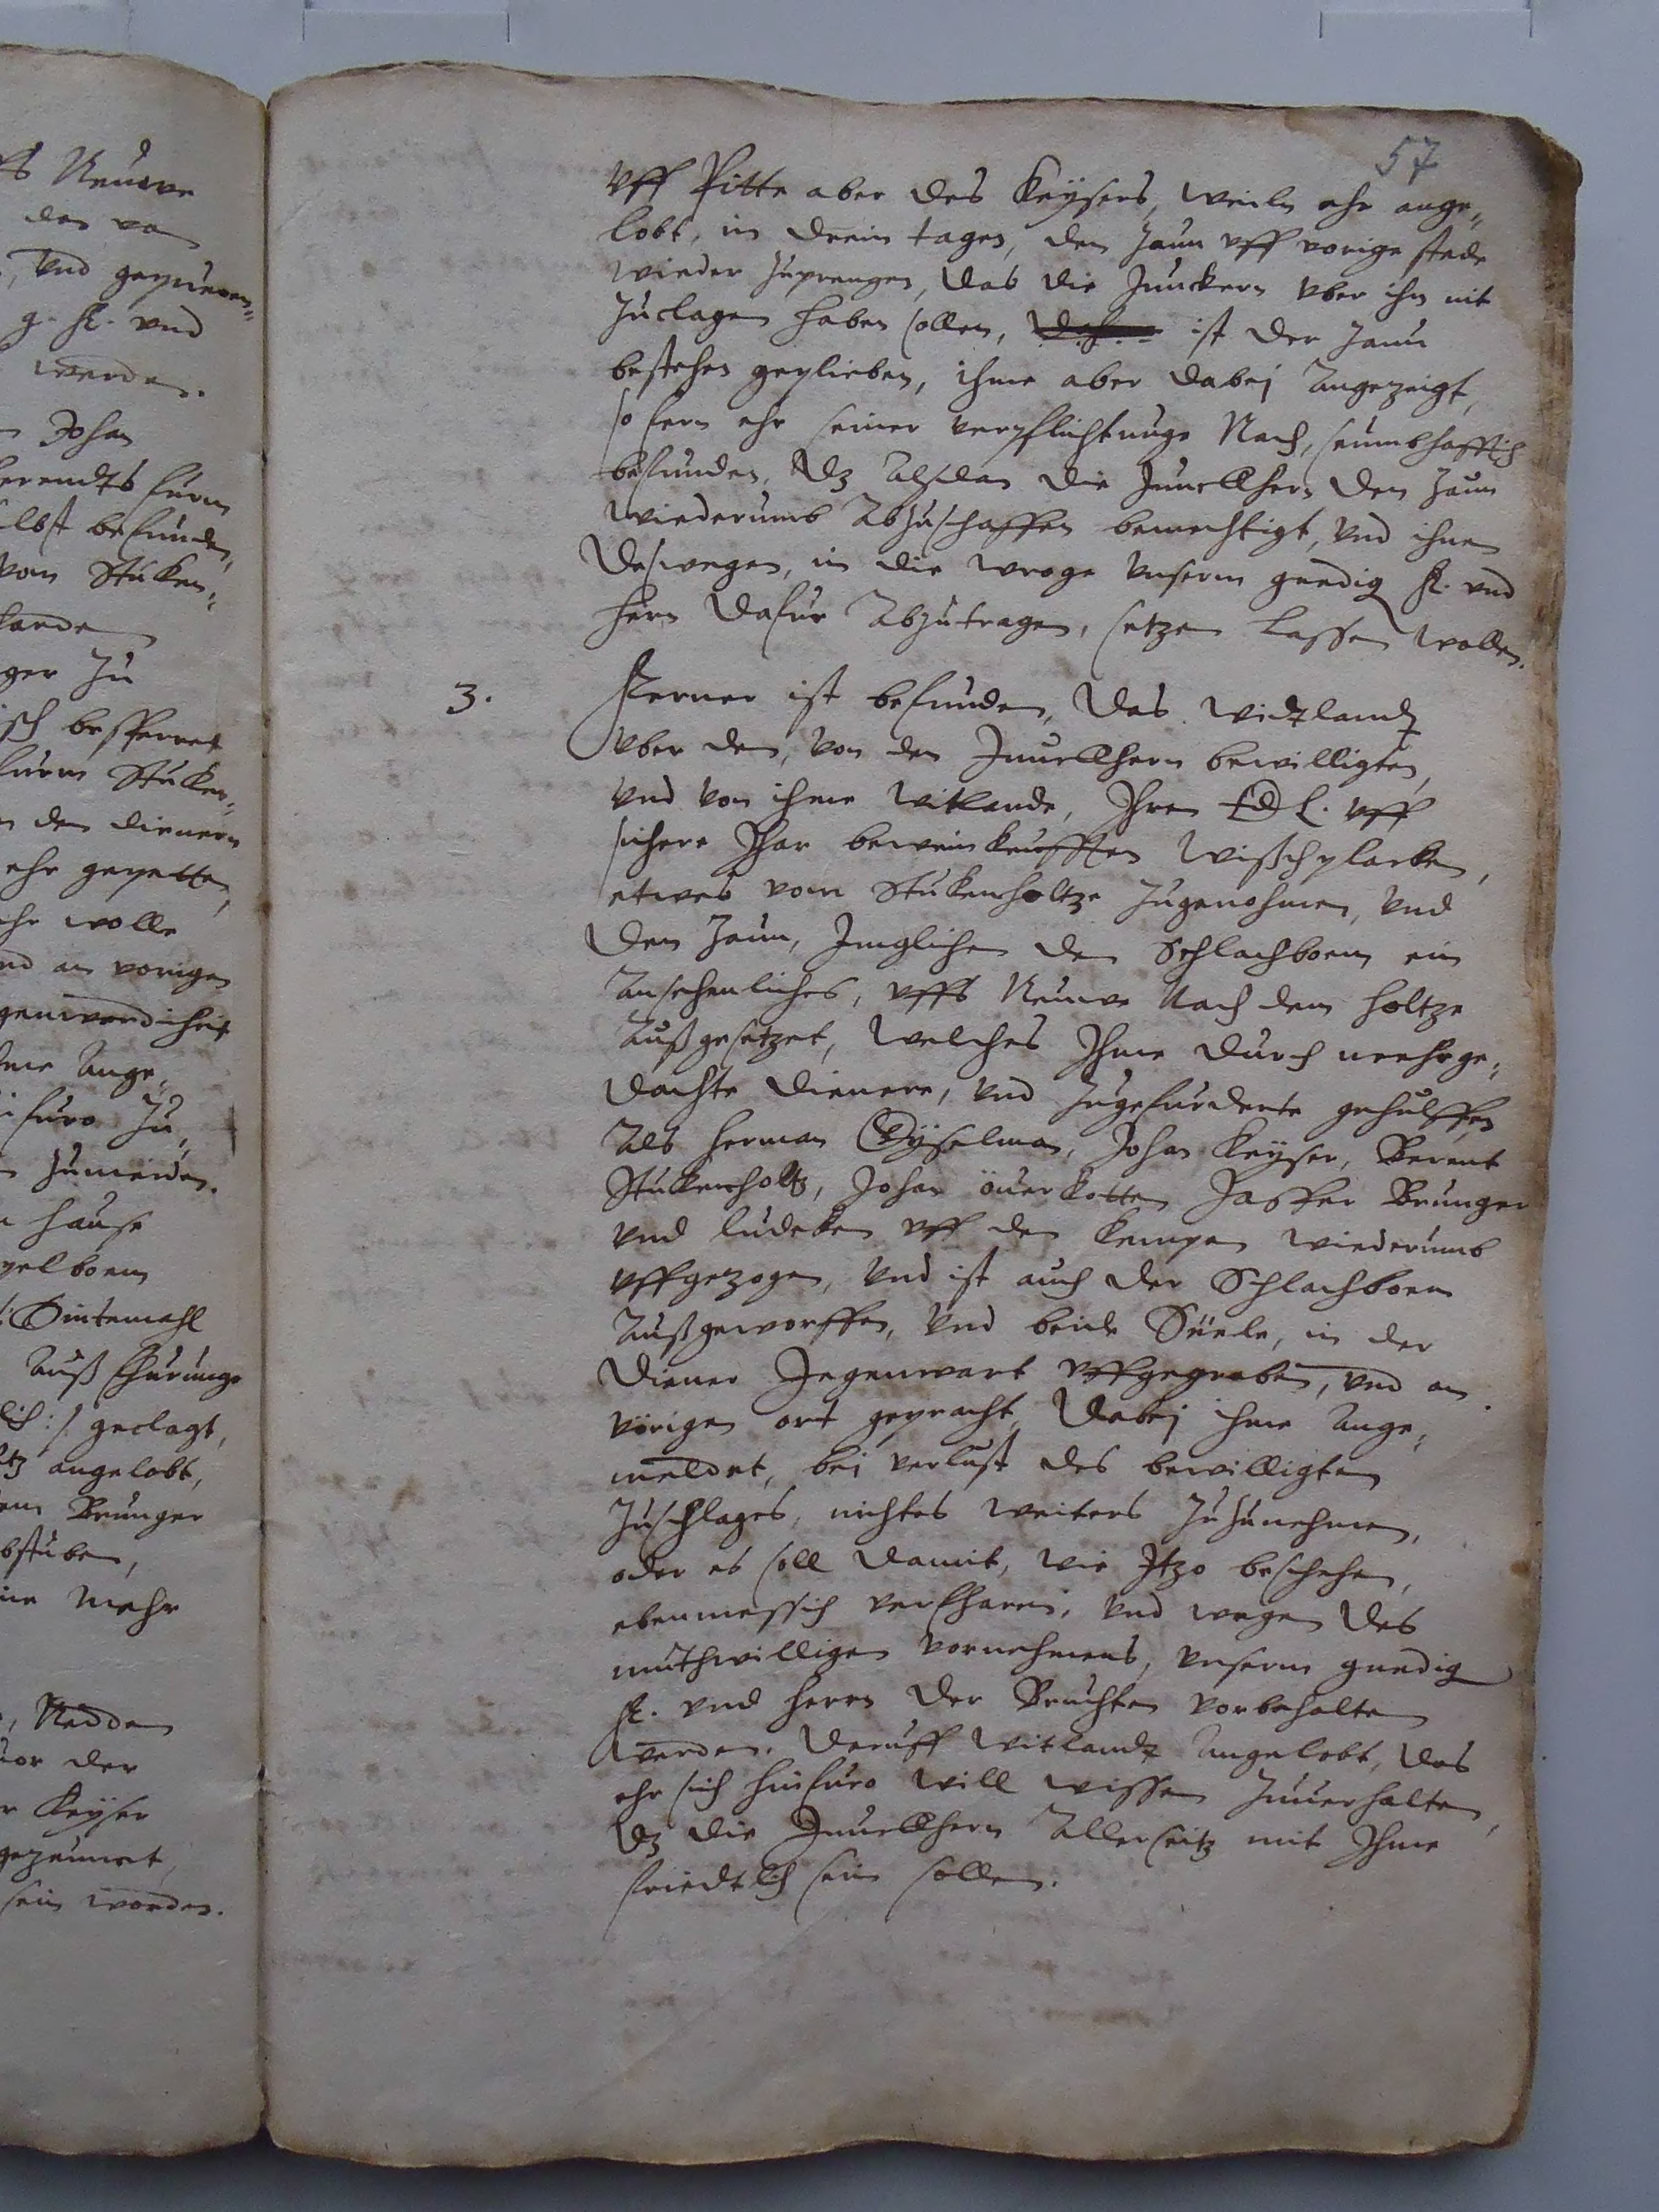 57
vff Pitte aber des Keysers, weiln ehr ange„
lobt, in drein tagen, den Zaun vff vorige stede
wieder zuprengen, das die Junckern vber ihn nit
Zuclagen haben sollen, ist der Zaun
bestehen geplieben, ihme aber dabej angezeigt,
so fern ehr seiner verpflichtunge Nach, seumbhafftich
befunden, dz alsdan die Junckhern den Zaun
wiederumb abzuschaffen bemechtigt, vnd ihnen
deswegen, in die wroge vnserm gnedig F. vnd
hern dafur abzutragen, setzen lassen wollen.
3.
Ferner ist befunden, das Witlandt
vber den, von den Junckhern bewilligten,
vnd von ihme Witlande, Ihren EdL. vff
sichere Jhar beweinkeufften Wischplacken,
etwes vom Stukenholtze zugenohmen, vnd
den Zaun, Imglichen den Schlachboem ein
ansehenliches, vffs Neuwe Nach dem holtze
außgesetzet, welches Ihme durch mehrge„
dachte dienere, vnd zugefurderte gehulffen
als Herman Gyselman, Johan Keyser, Berent
Stukenholtz, Johan öuerkotten Jasper Brunger
vnd Ludeken vff den Kempen wiederumb
vffgezogen, vnd ist auch der Schlachboem
außgeworffen, vnd beide Suele, in der
diener Jegenwart vffgegraben, vnd an
vörigen ort gepracht, dabej ihme ange„
meldet, bei verlust des bewilligten
Zuschlages, nichtes weiters zuzunehmen,
oder es soll damit, wie Itzo beschehen,
ebenmessich verfharen, vnd wegen des
muthwilligen vornehmens, vnserm gnedig
F. vnd Herrn der Bruchten vorbehalten
werden. Daruff Witlandt angelobt, das
ehr sich hinfuro will wissen zuuerhalten,
dz die Junckhern allerseitz mit Ihme
friedtlich sein sollen.